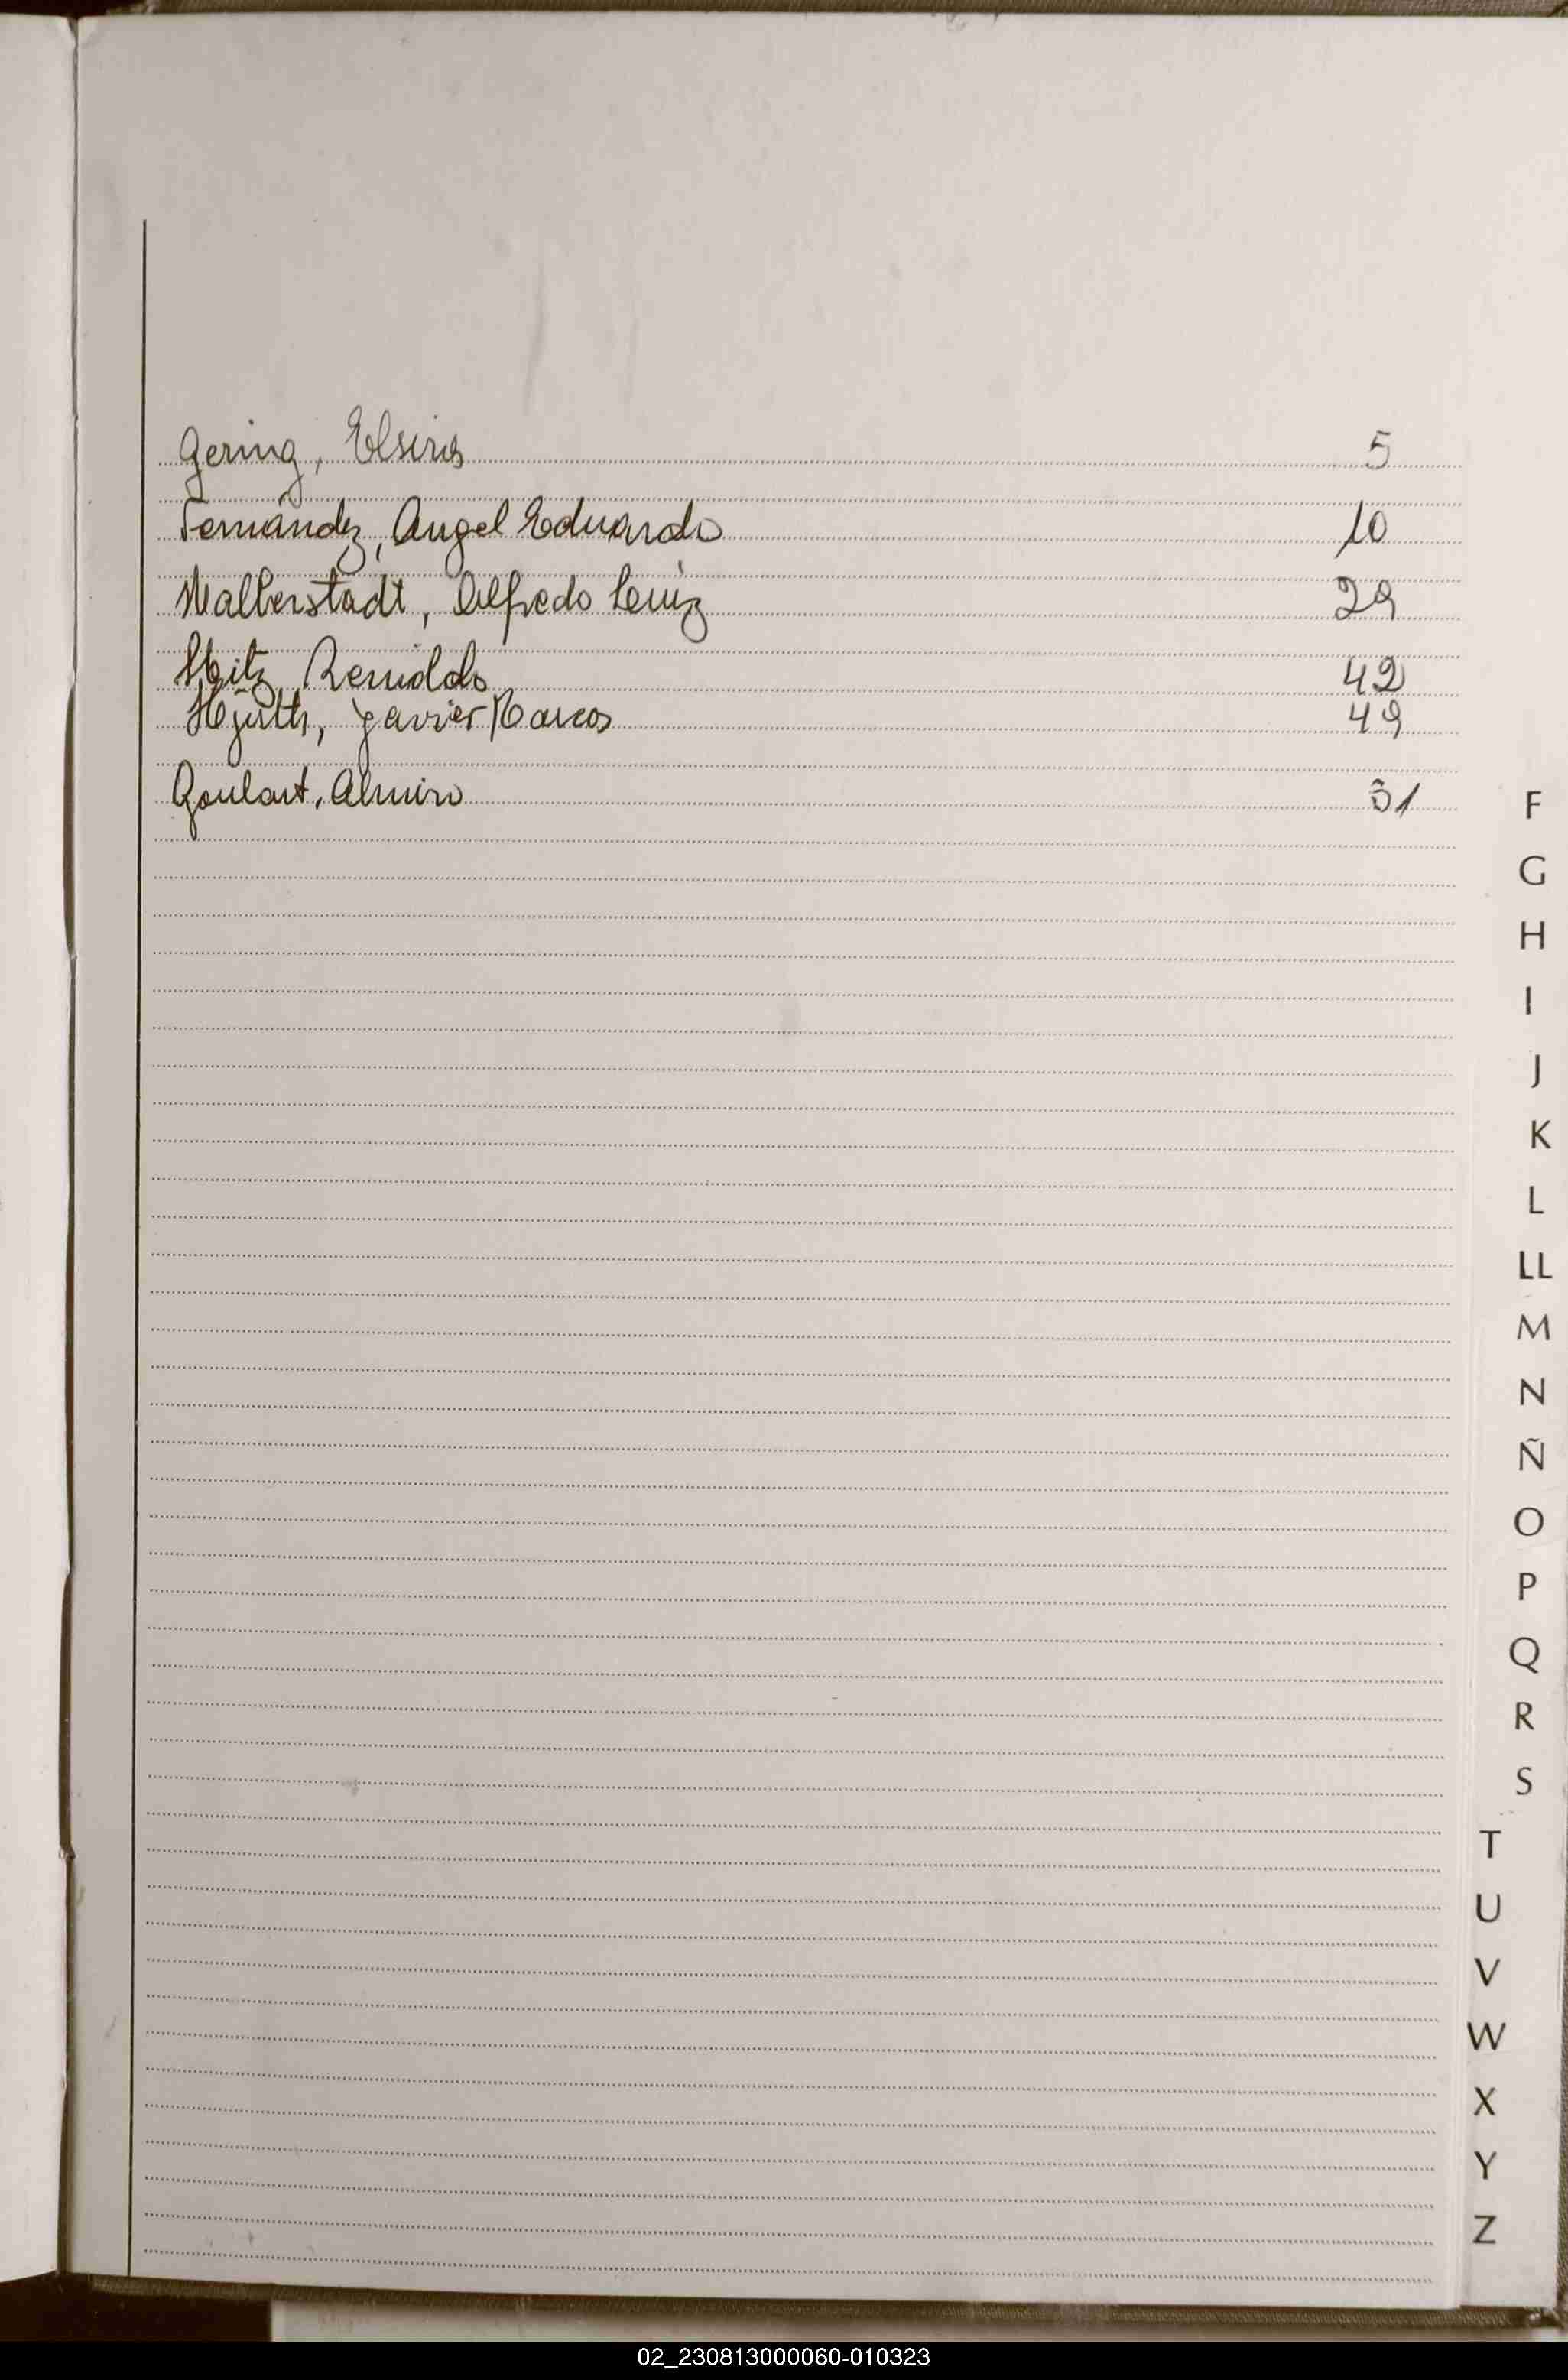 Gering, Elsira 5
Fernández, Angel Eduardo 10
Malberstadt, Alfredo Luiz 29
Reinoldo 42
Javier Marcos 49
Goulart, Almiro 51
F
G
H
I
J
K
L
LL
M
N
Ñ
O
P
Q
R
S
T
U
V
W
X
Y
Z
02_230813000060-010323